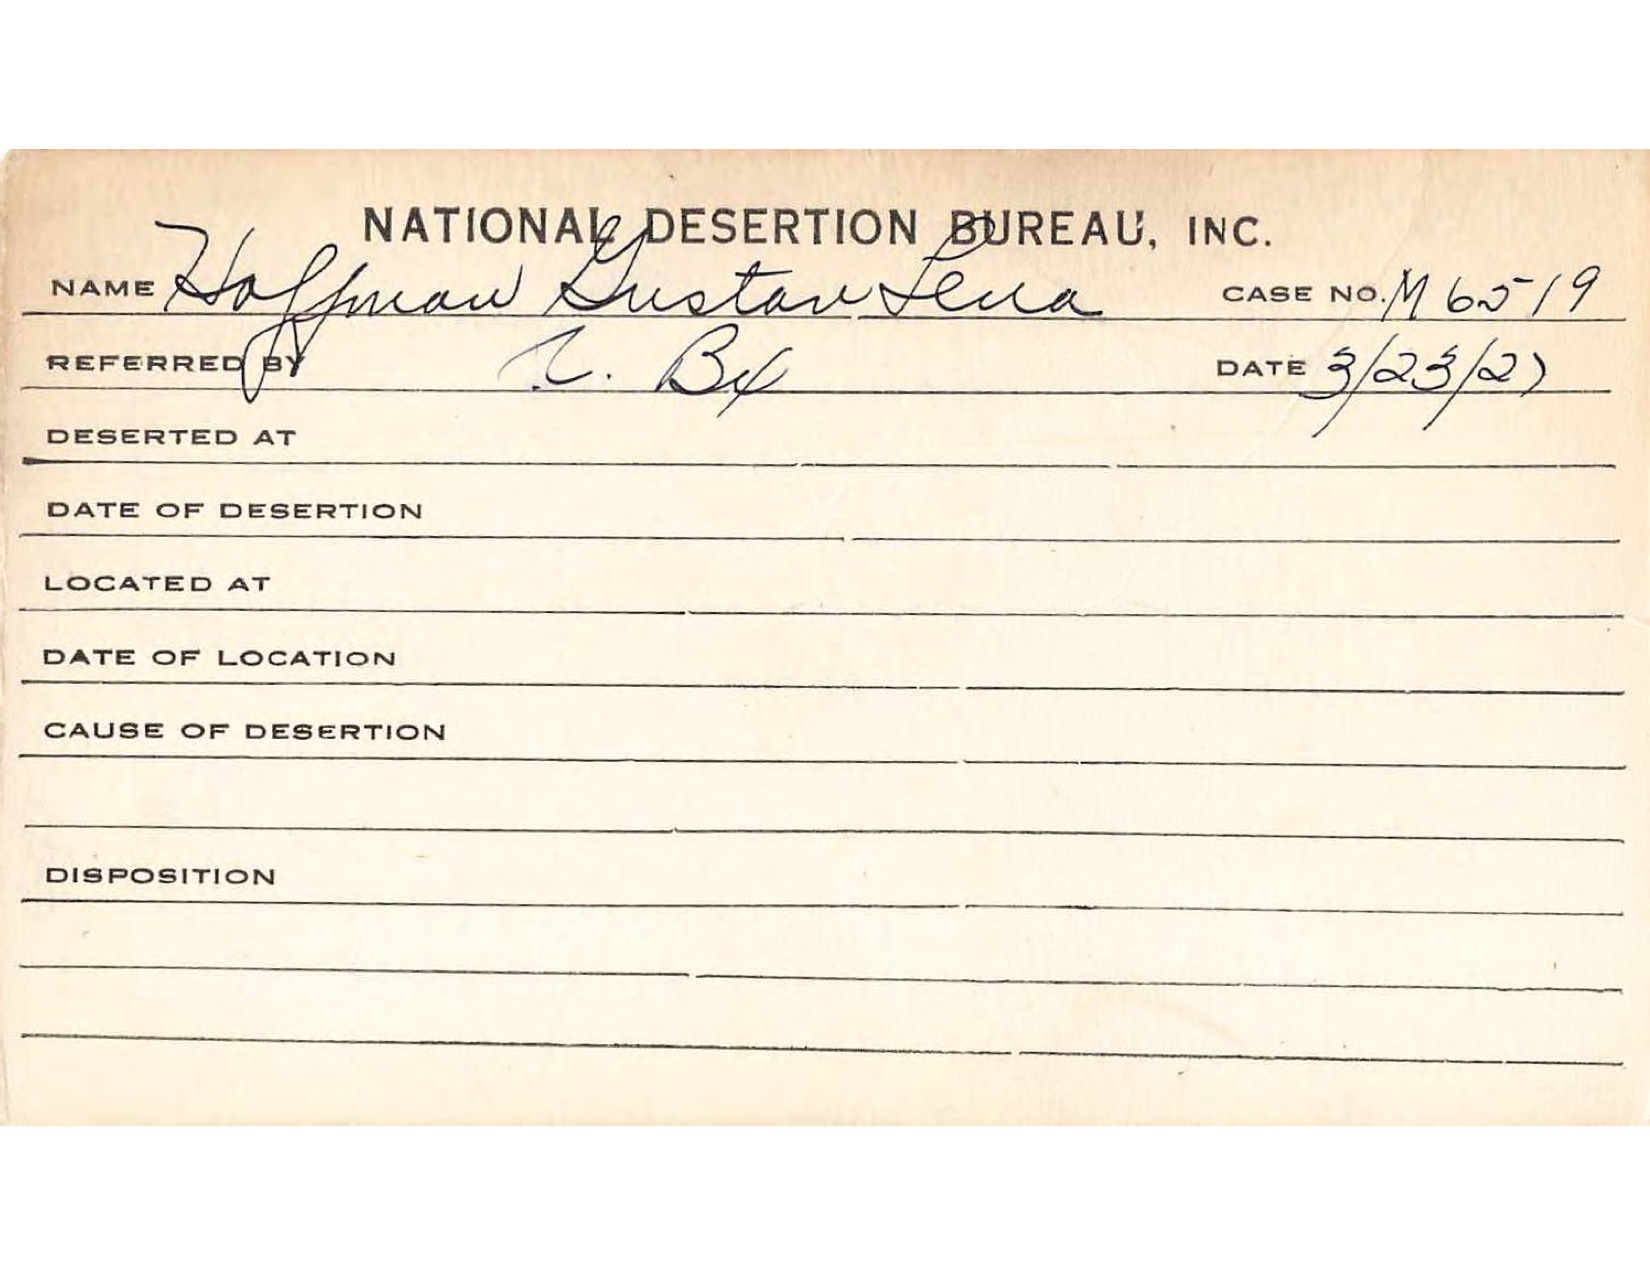 NATIONAL DESERTION BUREAU, INC.
NAME Hoffman Gustav Lena CASE NO. M 6519
REFERRED BY Bx DATE 3/23/27
DESERTED AT
DATE OF DESERTION
LOCATED AT
DATE OF LOCATION
CAUSE OF DESERTION
DISPOSITION